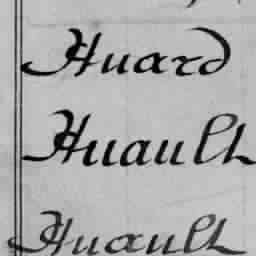 Huard
Huault
Huault